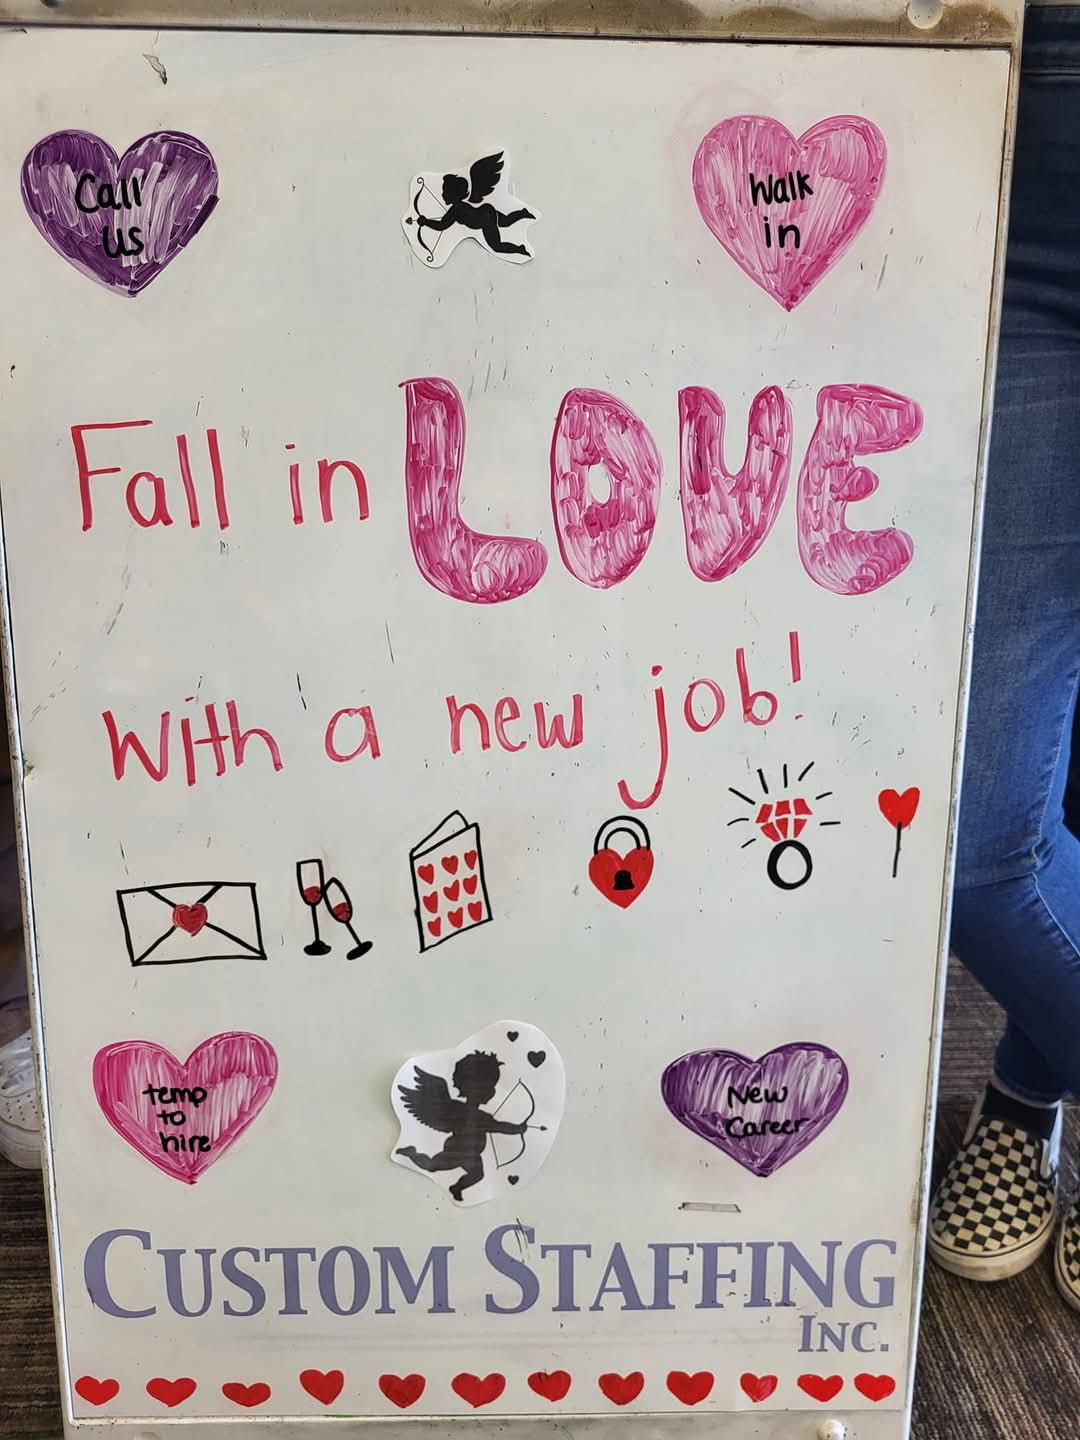 Call
us
Walk
in
Fall in LOVE
With a new job!
temp
to
hire
New
Career
CUSTOM STAFFING
INC.